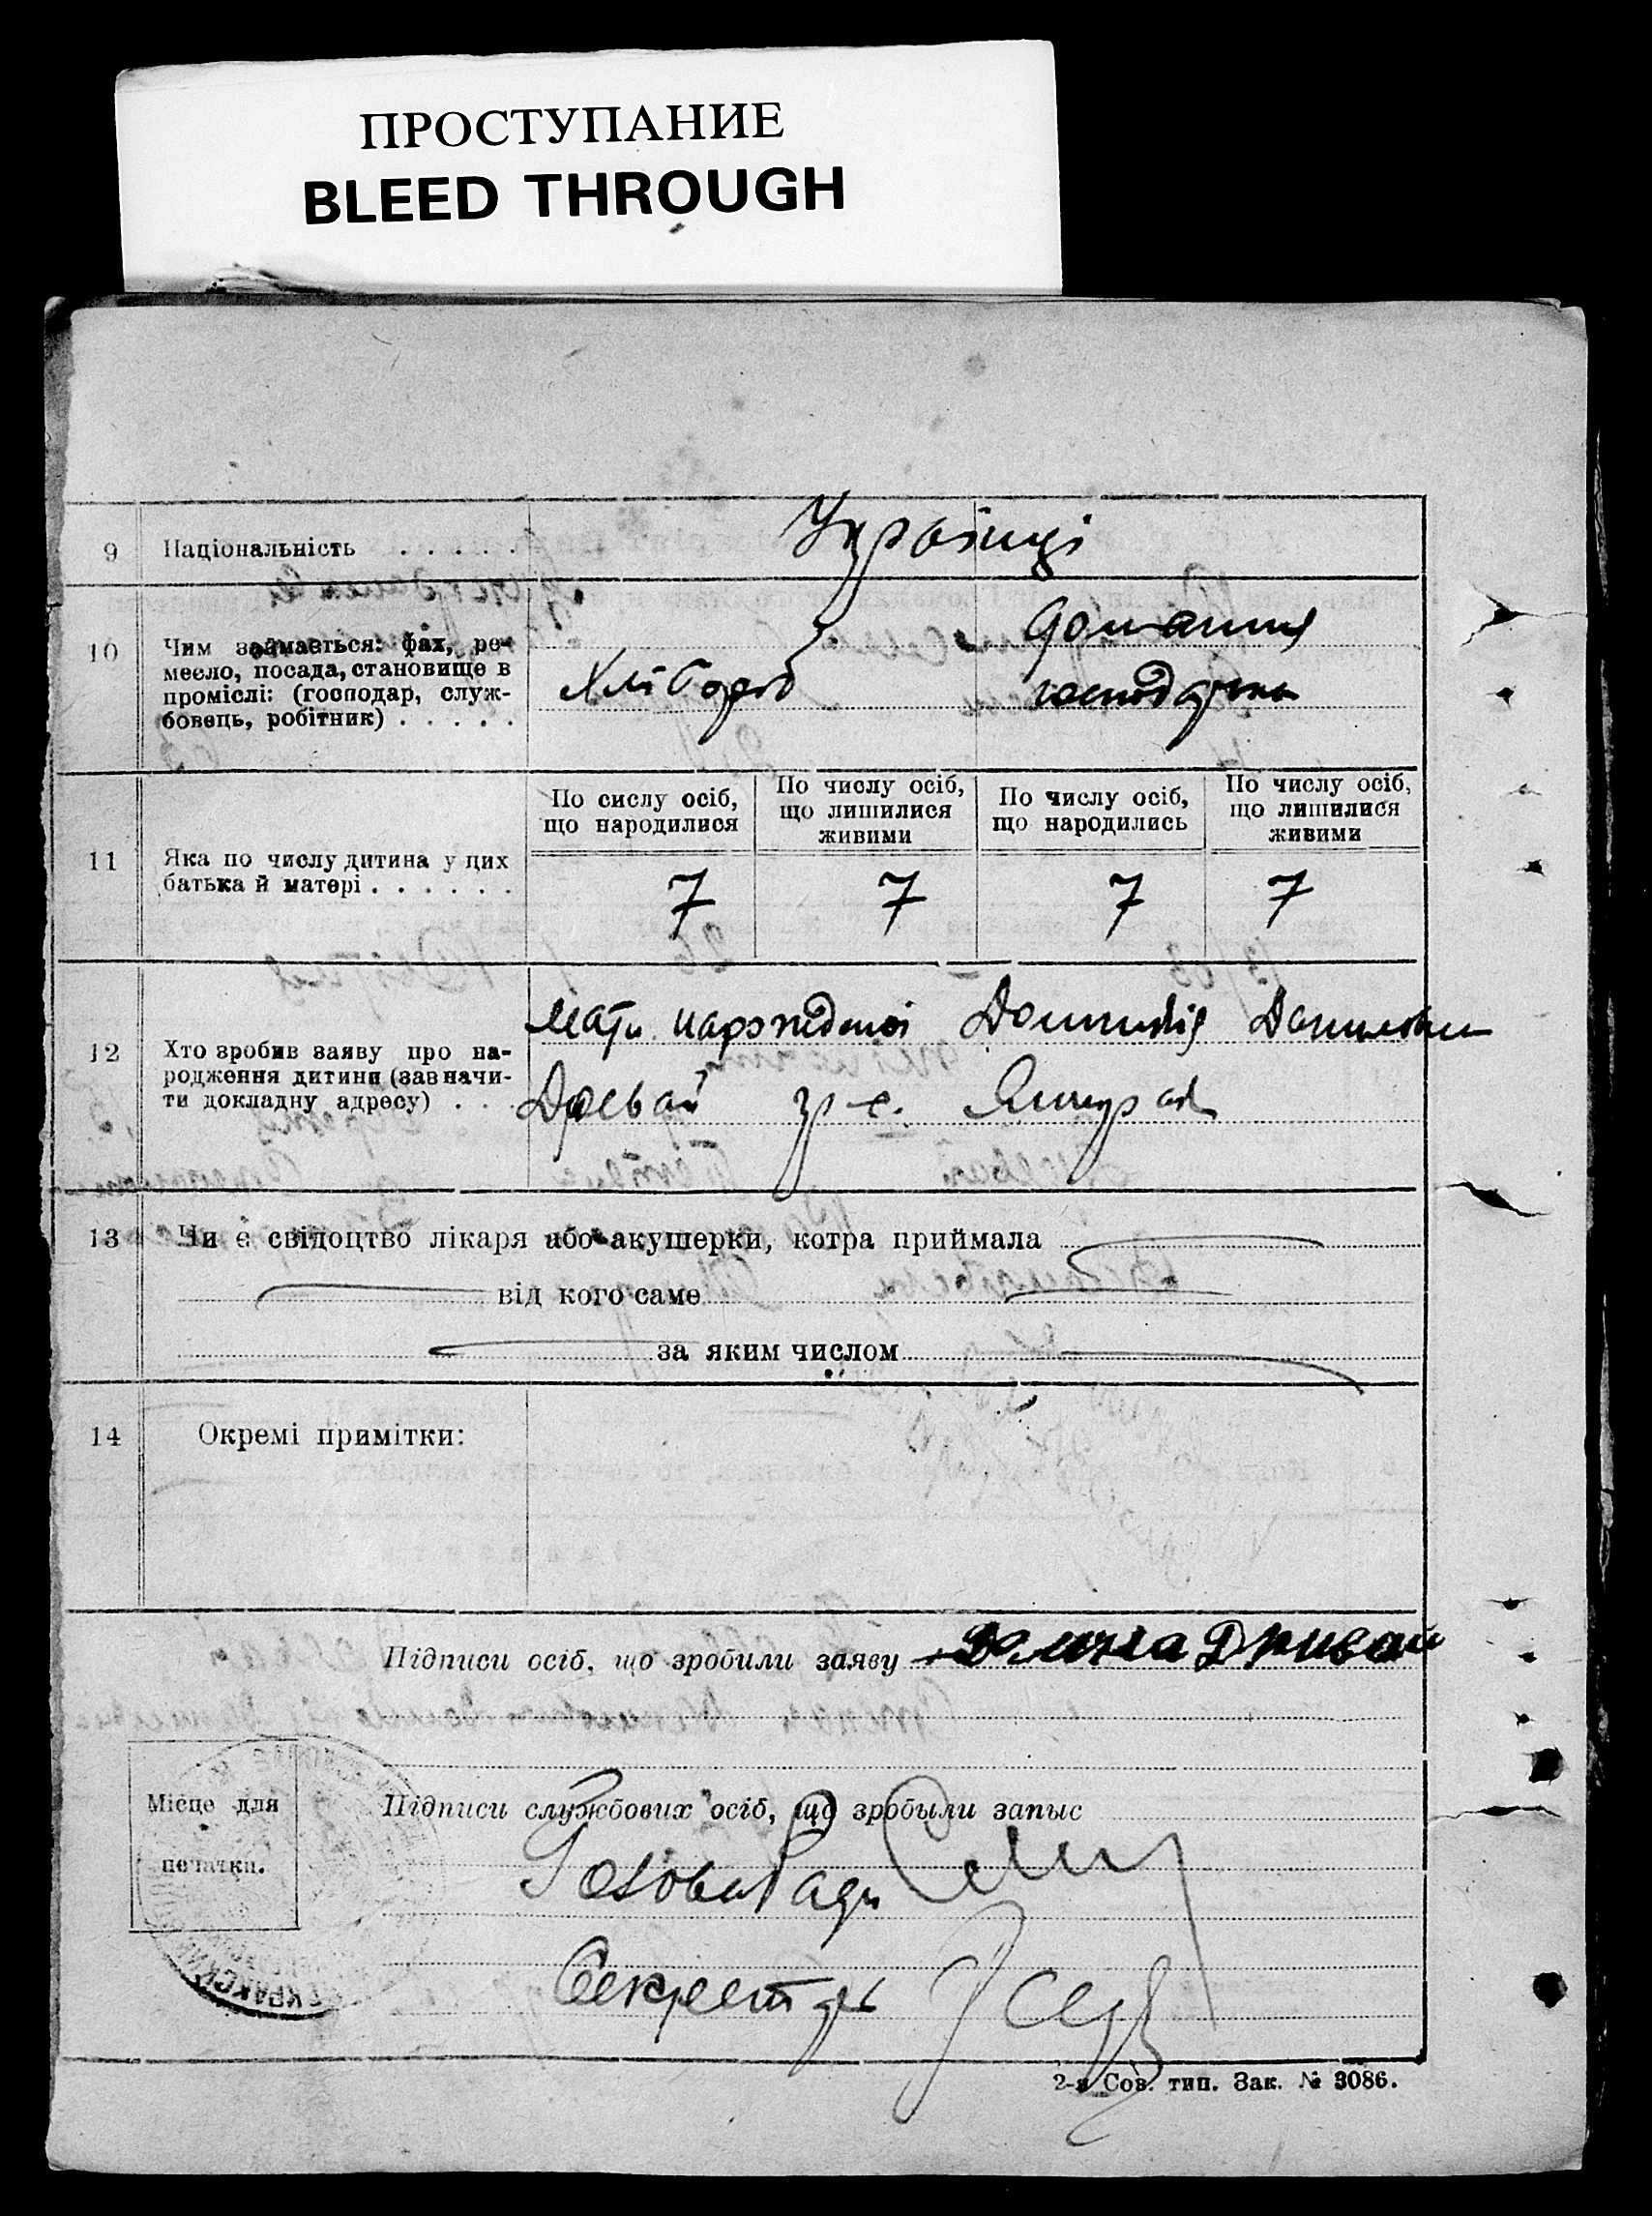 ПРОСТУПАНИЕ
BLEED THROUGH
9 Національність . . . . . Українці
10 Чим займається: фах, ре-
месло, посада, становище в
проміслі: (господар, служ-
бовець, робітник) . . . . .
Хлібороб
домашня
господарка
11 Яка по числу дитина у цих
батька й матері . . . . . .
По сислу осіб,
що народилися
По числу осіб,
що лишилися
живими
По числу осіб,
що народились
По числу осіб,
що лишилися
живими
7 7 7 7
12 Хто зробив заяву про на-
родження дитини (зазначи-
ти докладну адресу) . . .
Мати
Древаль з с.
13 Чи є свідоцтво лікаря або акушерки, котра приймала
від кого саме
за яким числом
14 Окремі примітки:
Підписи осіб, що зробили заяву
Місце для
печатки.
Підписи службових осіб, що зробыли запыс
Голова Ради
Секретарь
2-я Сов. тип. Зак. № 3086.